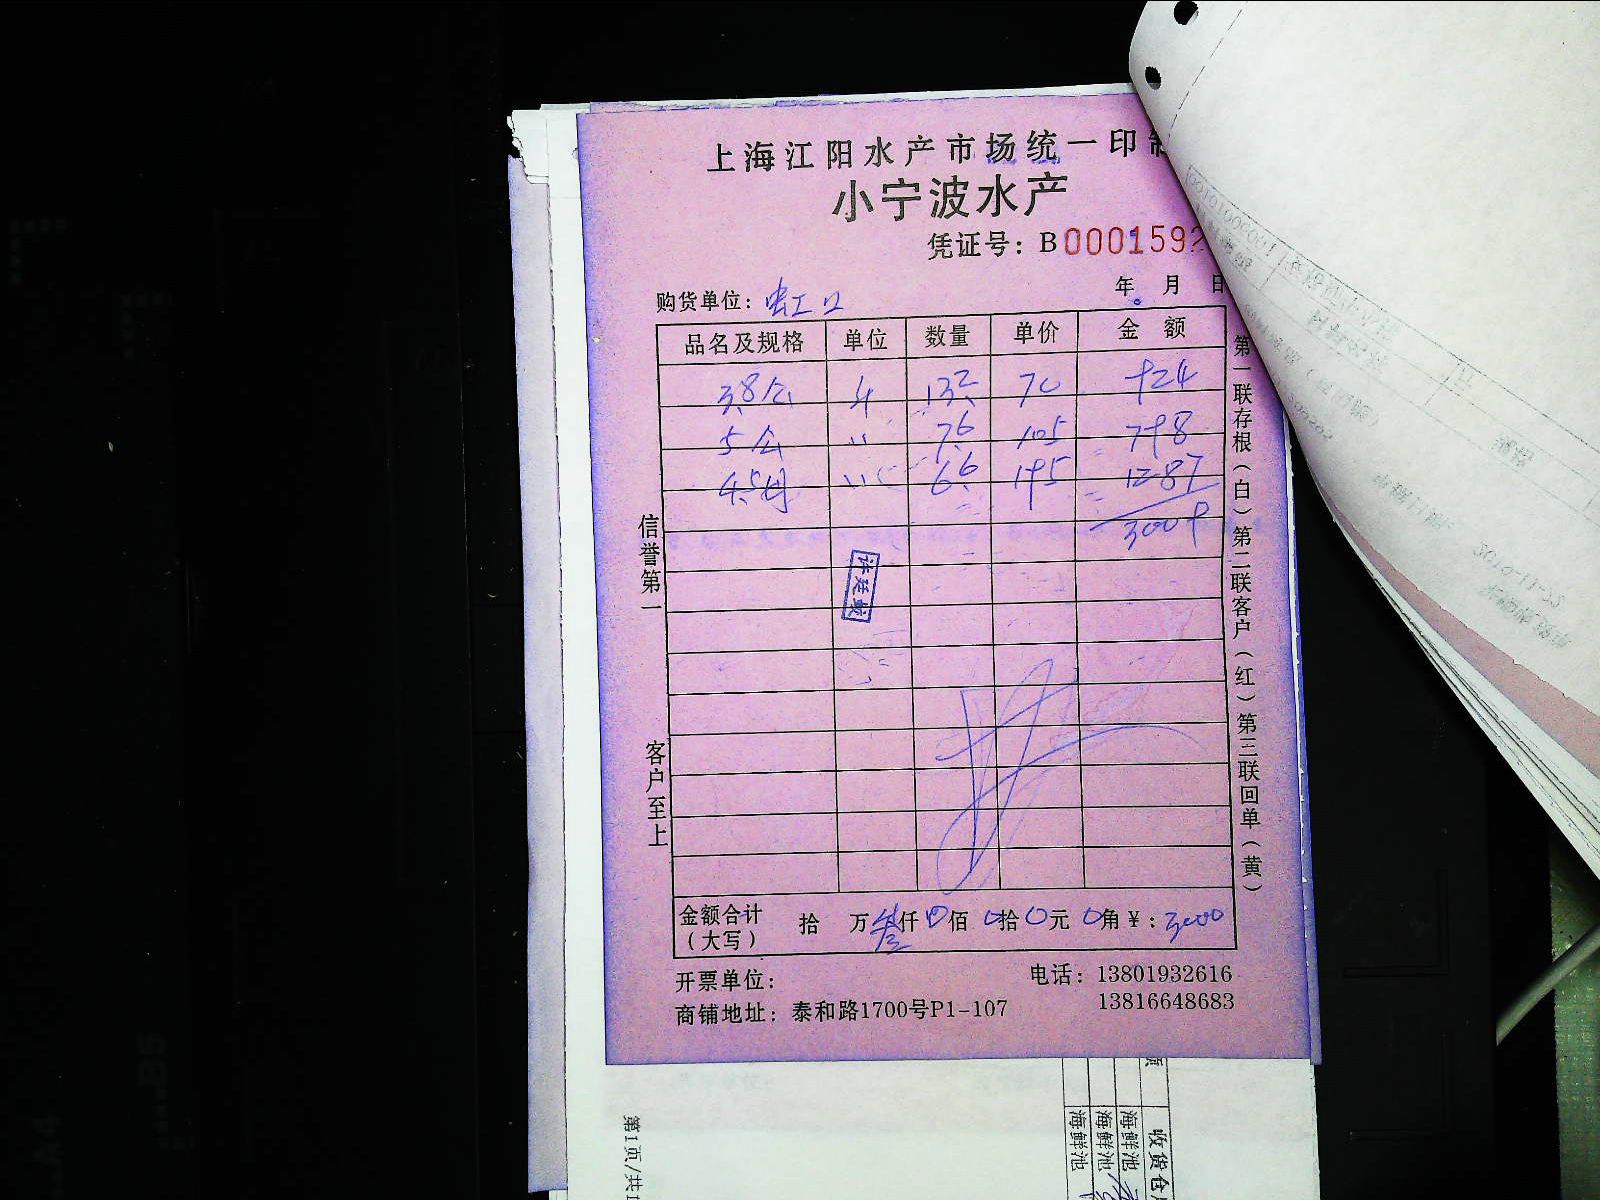 上海江阳水产市场统一印制
小宁波水产
凭证号：B 0001592
购货单位：虹口
年 月 日
品名及规格 单位 数量 单价 金 额
3.8公 斤 13.2 70 924
5公 〃 7.6 105 798
4.5母 〃 6.6 195 1287
3009
信誉第一
客户至上
第一联存根（白）第二联客户（红）第三联回单（黄）
金额合计（大写） 拾 万叁仟0佰0拾0元0角￥：3000
开票单位：
电话：13801932616
13816648683
商铺地址：泰和路1700号P1-107
第1页/共1
收货仓
海鲜池
海鲜池
海鲜池